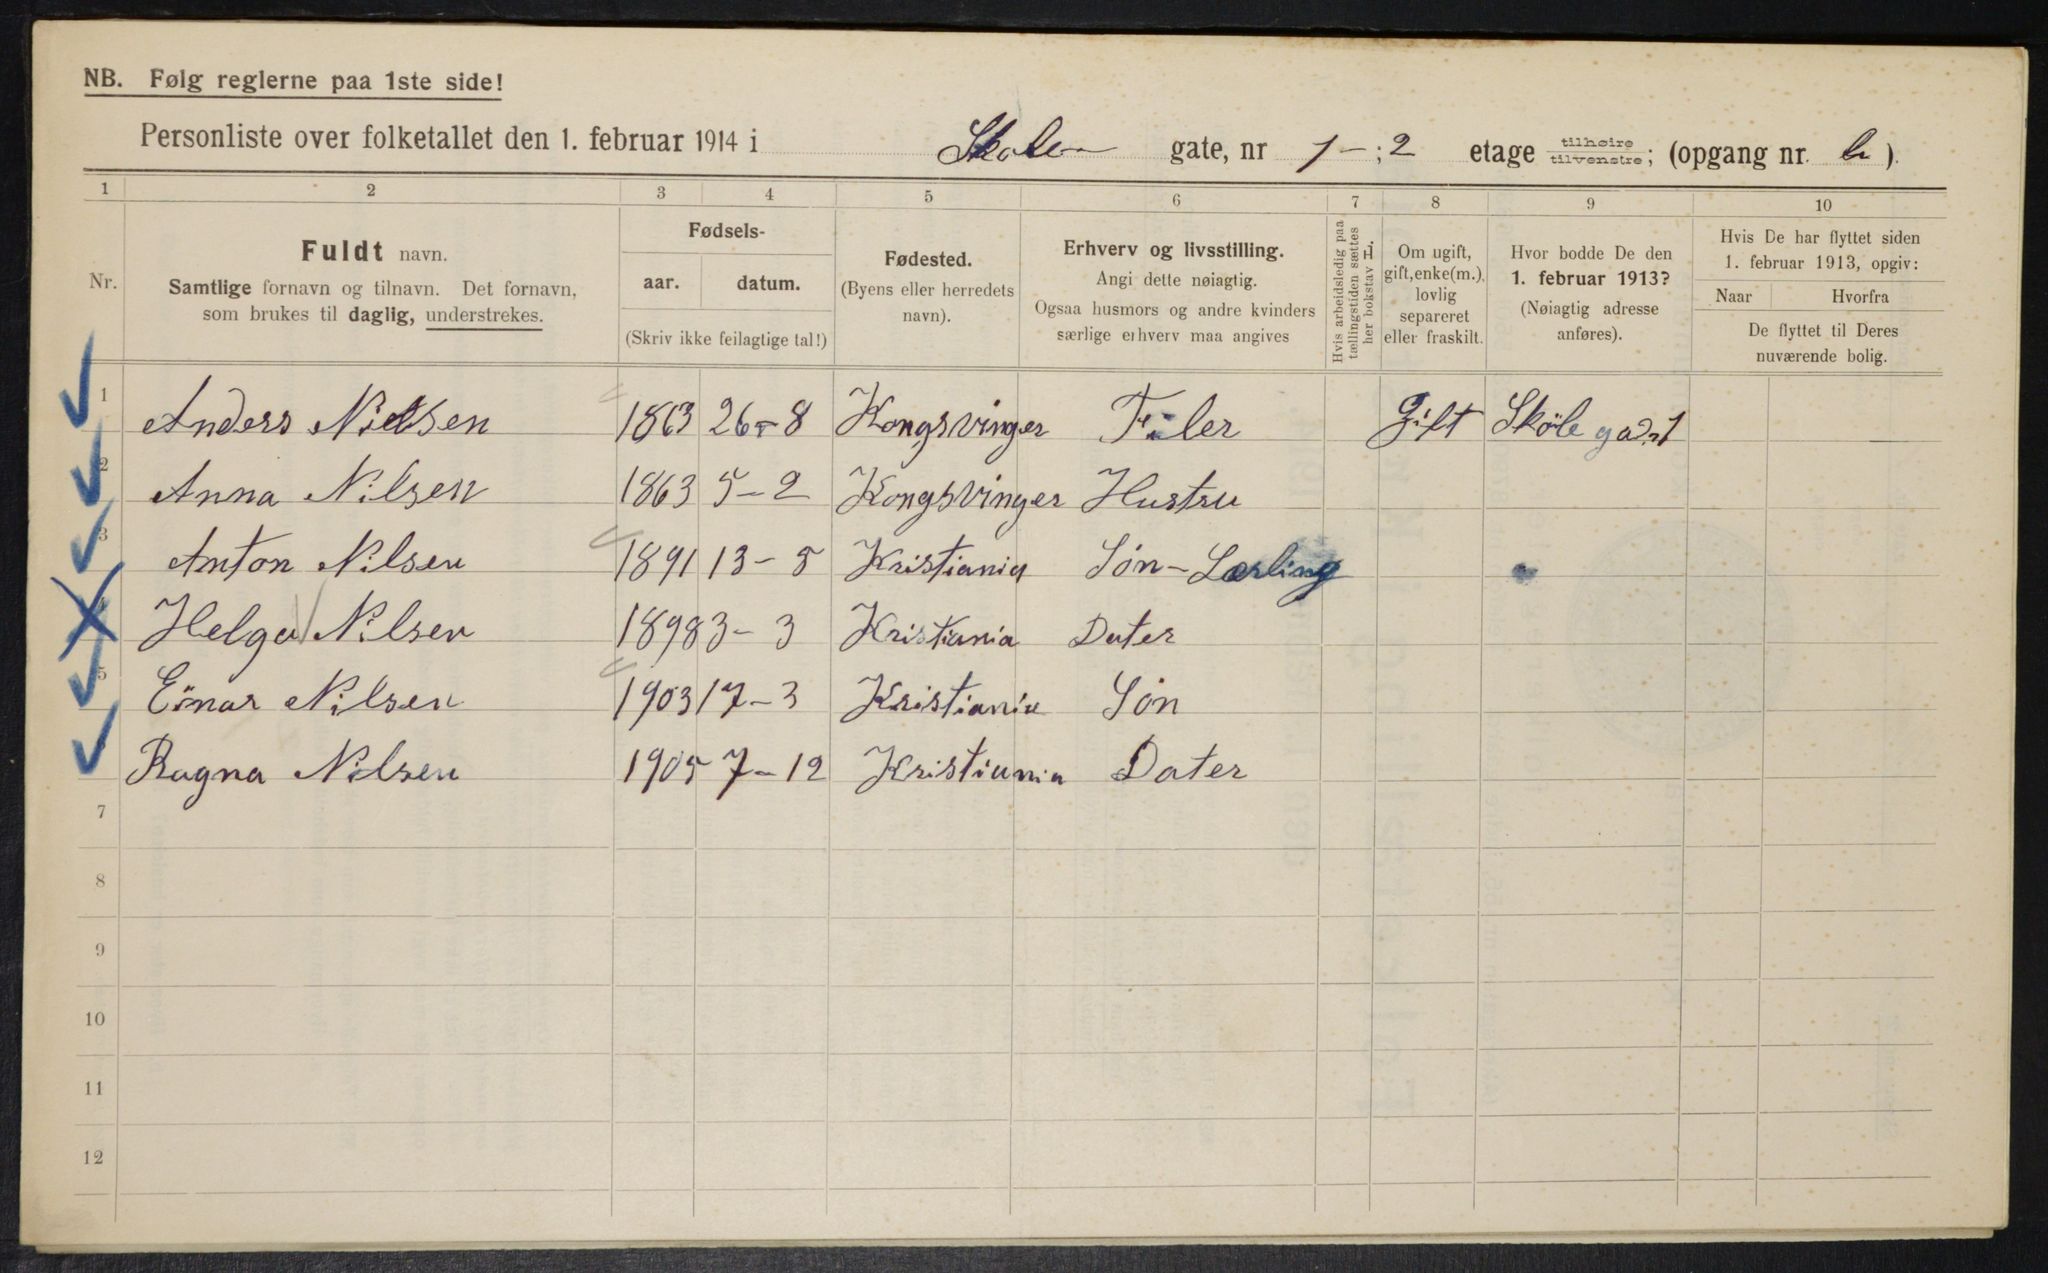 NB. Følg reglerne paa 1ste side!
Personliste over folketallet den 1. februar 1914 i Skolen gate, nr 1 - ; 2 etage tilhøire/tilvenstre; (opgang nr. b).
1 2 3 4 5 6 7 8 9 10
Nr.
Fuldt navn.
Samtlige fornavn og tilnavn. Det fornavn,
som brukes til daglig, understrekes.
Fødsels-
aar. datum.
(Skriv ikke feilagtige tal!)
Fødested.
(Byens eller herredets
navn).
Erhverv og livsstilling.
Angi dette nøiagtig.
Ogsaa husmors og andre kvinders
særlige erhverv maa angives
Hvis arbeidsledig paa
tællingstiden sættes
her bokstav L.
Om ugift,
gift, enke(m.),
lovlig
separeret
eller fraskilt.
Hvor bodde De den
1. februar 1913?
(Nøiagtig adresse
anføres).
Hvis De har flyttet siden
1. februar 1913, opgiv:
Naar Hvorfra
De flyttet til Deres
nuværende bolig.
1 Anders Nielsen 1863 26-8 Kongsvinger Filer Gift Skole gad. 1
2 Anna Nilsen 1863 5-2 Kongsvinger Hustru
3 Anton Nilsen 1891 13-5 Kristiania Søn - Lærling
4 Helga Nilsen 1898 3-3 Kristiania Dater
5 Einar Nilsen 1903 17-3 Kristiania Søn
Ragna Nilsen 1905 7-12 Kristiania Dater
7
8
9
10
11
12